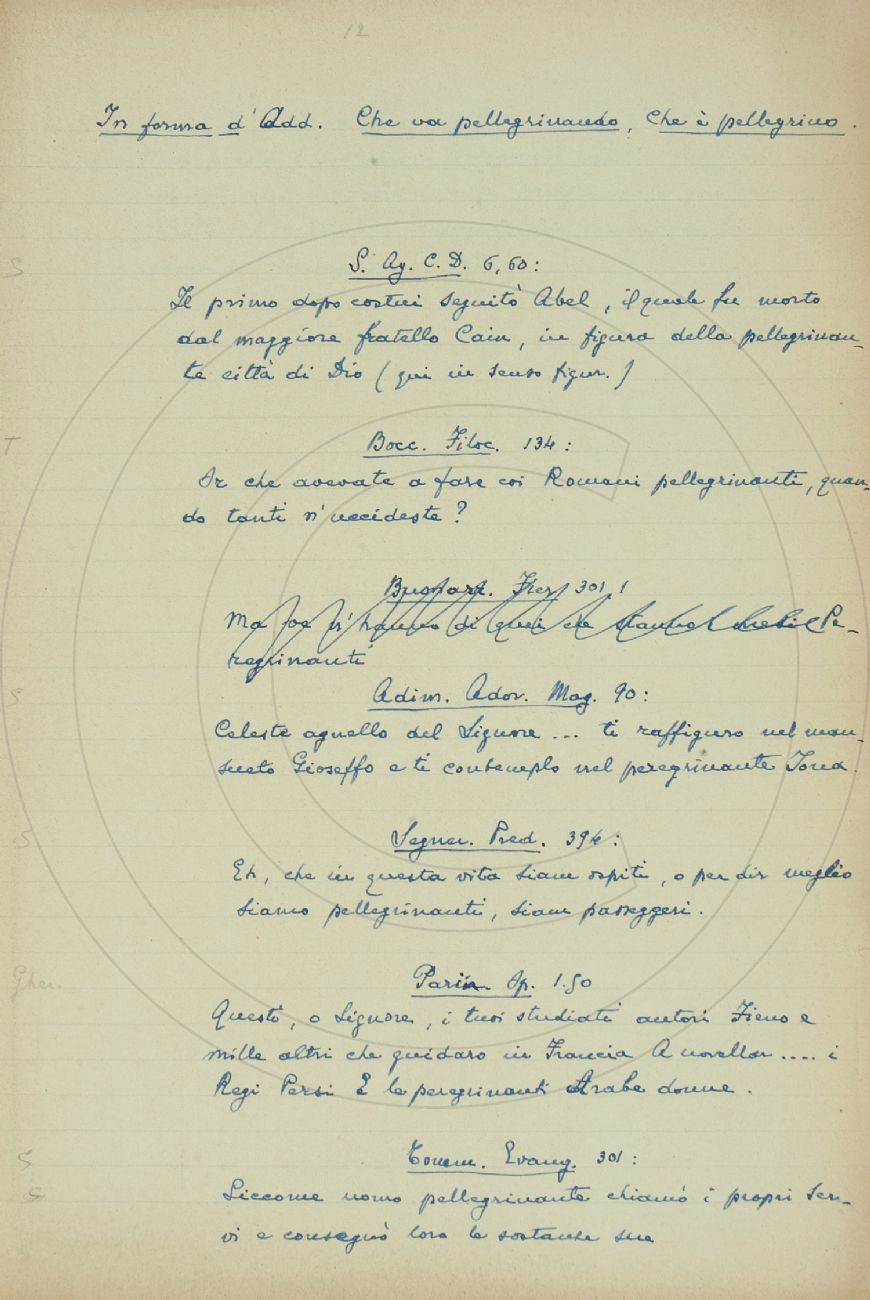 12
In forma d' Add. Che va pellegrinando, Che è pellegrino.
S. Ag. C. D. 6, 60:
Il primo dopo costui seguitò Abel, il quale fu morto
dal maggiore fratello Cain, in figura della pellegrinan-
te città di Dio (qui in senso figur.)
Bocc. Filoc. 134:
Or che avevate a fare coi Romani pellegrinanti, quan-
do tanti n' uccideste?
Buonarr. Fier. 301.1
Ma se v'hanno di quei che stanno Pe-
regrinanti
Adim. Ador. Mag. 90:
Celeste agnello del Signore ... ti raffiguro nel man-
sueto Gioseffo e ti contemplo nel peregrinante Iona.
Segner. Pred. 394:
Eh, che in questa vita siam ospiti, o per dir meglio
siamo pellegrinanti, siam passeggeri.
Parin. Op. 1.50
Questi, o Signore, i tuoi studiati autori Fieno e
mille altri che guidaro in Francia A novellar .... i
Regi Persi E le peregrinanti Arabe donne.
Tomm. Evang. 301:
Siccome uomo pellegrinante chiamò i propri ser-
vi e consegnò loro le sostanze sue
S
T
S
S
Gher.
S
S